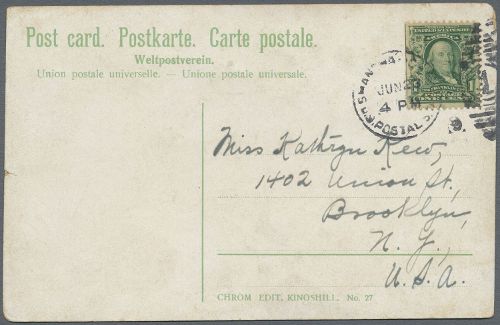 Post card. Postkarte. Carte postale.
Weltpostverein.
Union postale universelle. — Unione postale universale.
JUN 23
4 P
POSTAL
Miss Kathryn Kew,
1402 Union St,
Brooklyn,
N. Y.,
U.S.A.
CHROM EDIT, KINGSHILL, No. 27